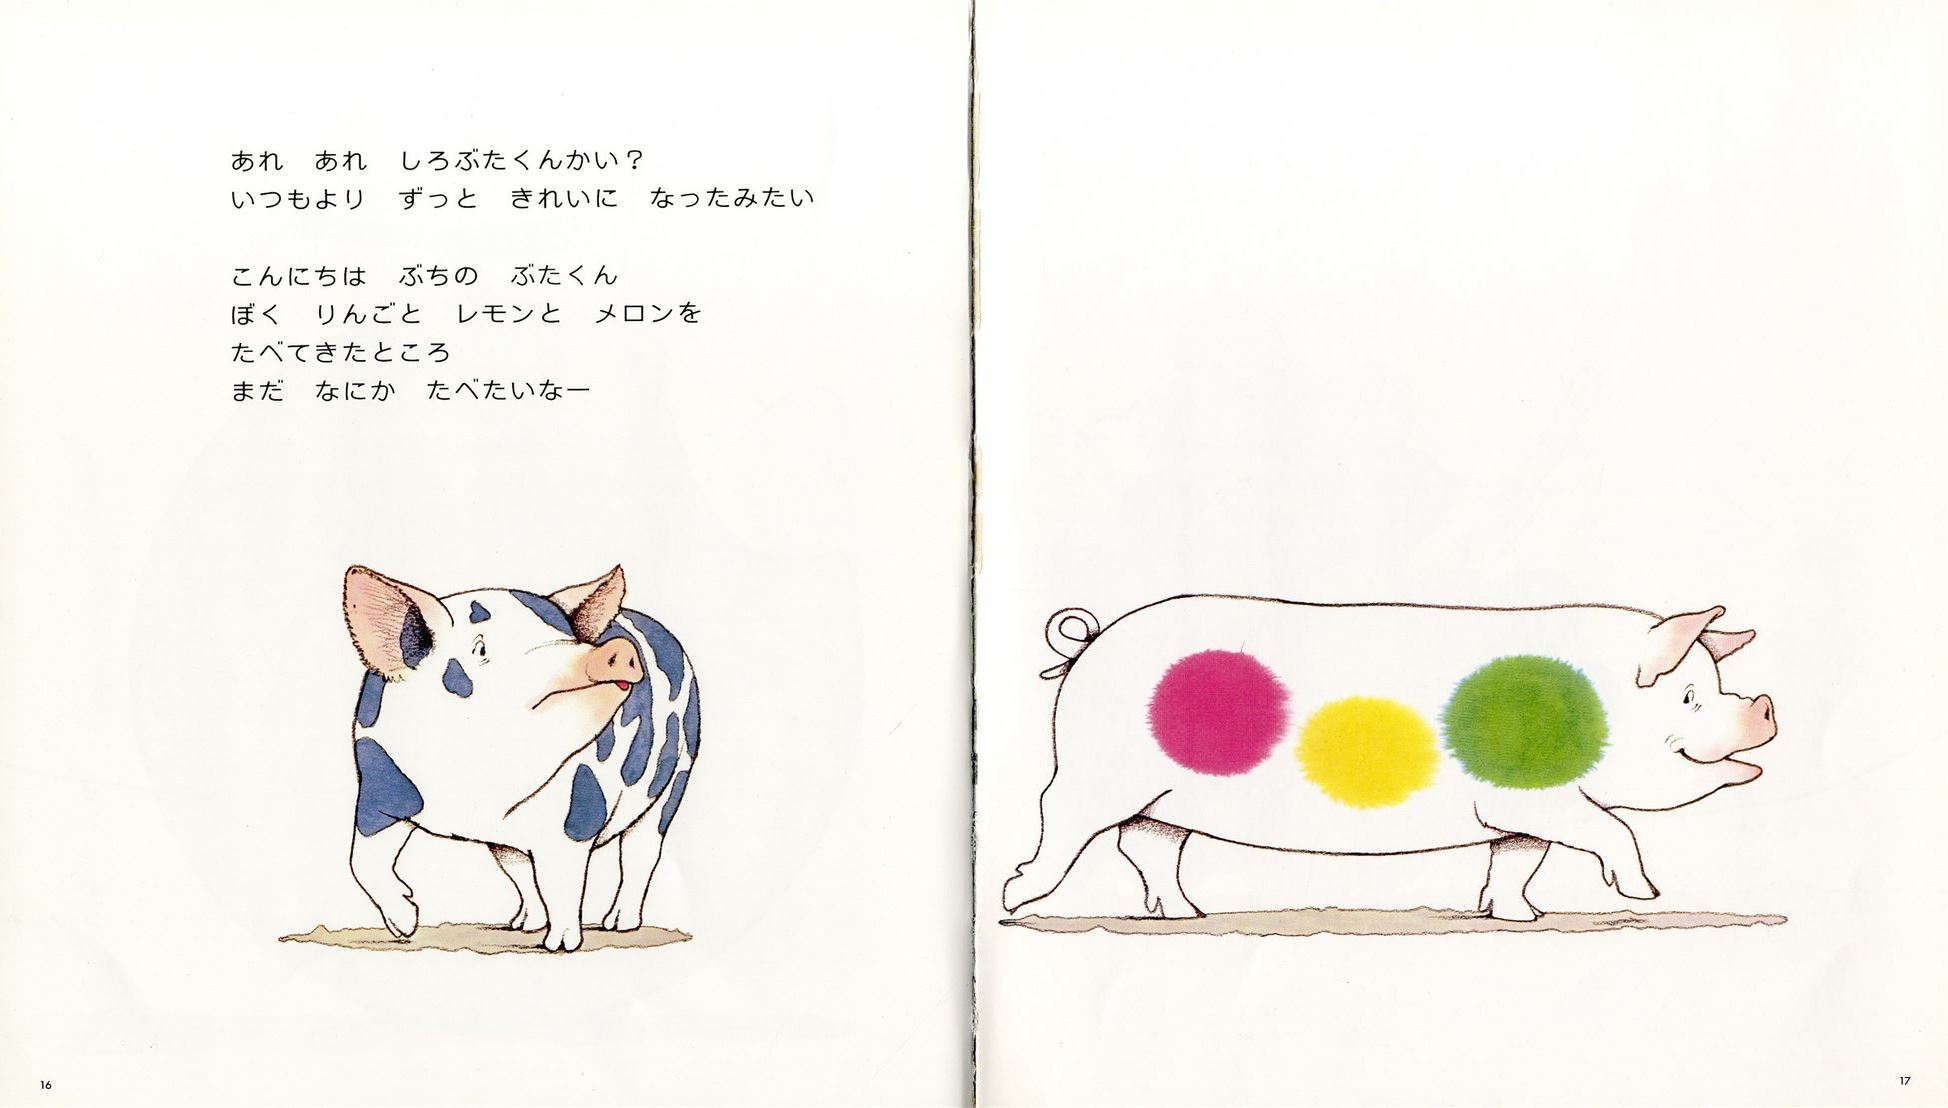 あれ　あれ　しろぶたくんかい？
いつもより　ずっと　きれいに　なったみたい
こんにちは　ぶちの　ぶたくん
ぼく　りんごと　レモンと　メロンを
たべてきたところ
まだ　なにか　たべたいなー
16
17